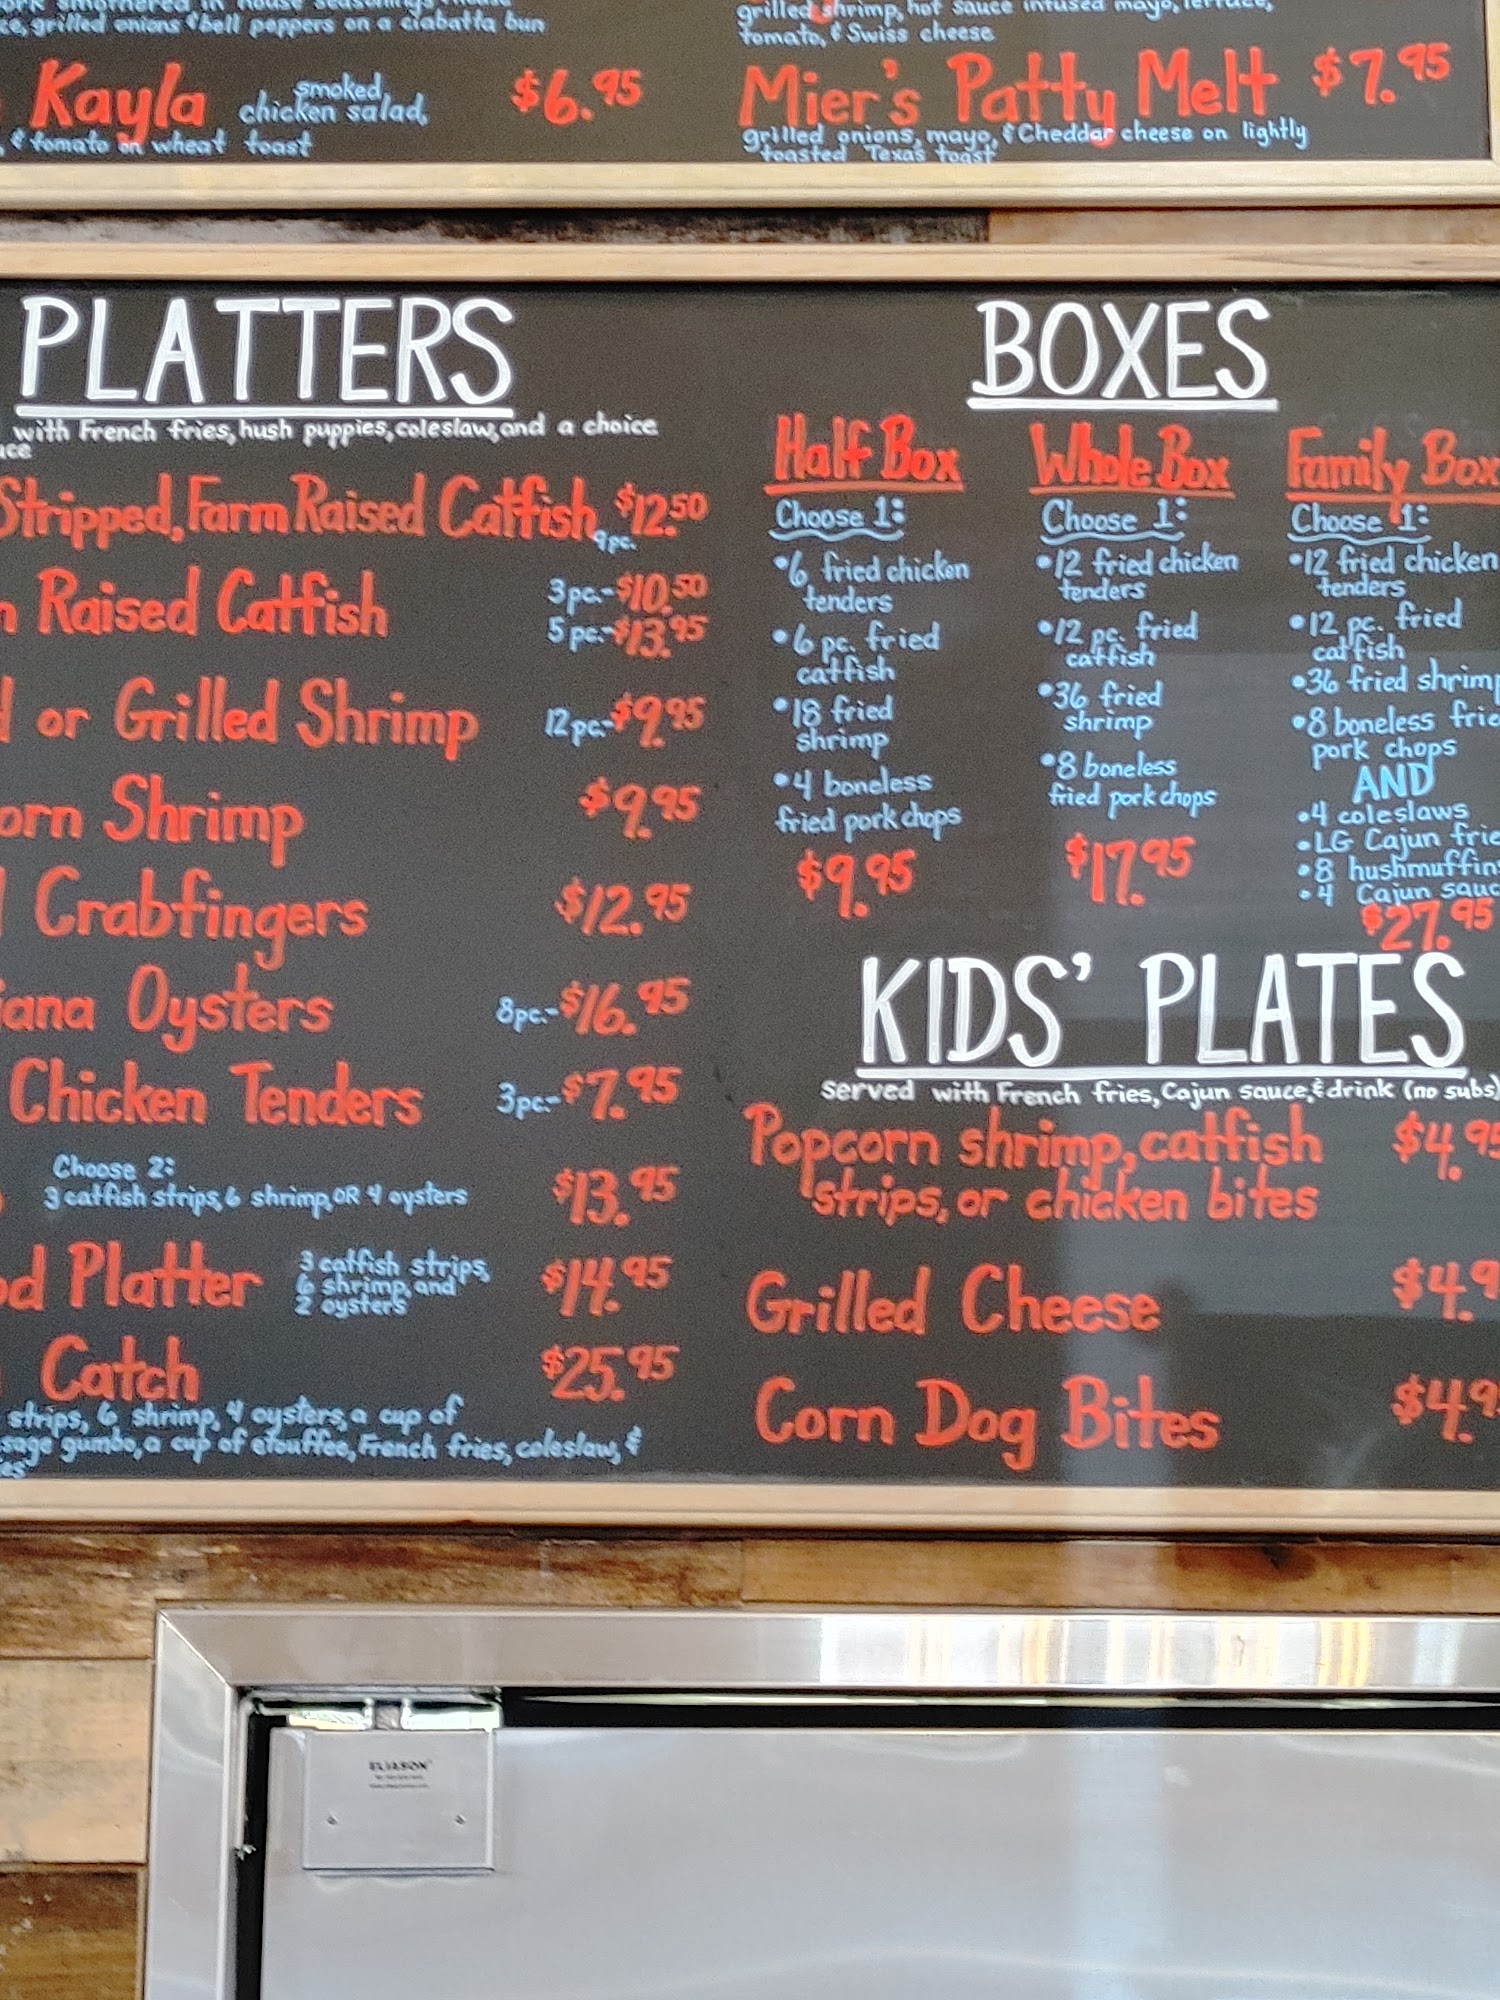 smothered in house seasonings
grilled onions & bell peppers on a ciabatta bun
Kayla smoked chicken salad, $6.95
& tomato on wheat toast
grilled shrimp, hot sauce infused mayo, lettuce,
tomato, & Swiss cheese
Mier's Patty Melt $7.95
grilled onions, mayo, & Cheddar cheese on lightly
toasted Texas toast
PLATTERS
with French fries, hush puppies, coleslaw, and a choice
Stripped, Farm Raised Catfish 9pc. $12.50
Raised Catfish 3pc.-$10.50
5 pc.-$13.95
or Grilled Shrimp 12pc.-$9.95
Shrimp $9.95
Crabfingers $12.95
Oysters 8pc.-$16.95
Chicken Tenders 3pc.-$7.95
Choose 2:
3 catfish strips, 6 shrimp, OR 4 oysters $13.95
Platter 3 catfish strips, $14.95
6 shrimp, and
2 oysters
Catch $25.95
strips, 6 shrimp, 4 oysters, a cup of
gumbo, a cup of etouffee, French fries, coleslaw, &
BOXES
Half Box
Choose 1:
•6 fried chicken
tenders
•6 pc. fried
catfish
•18 fried
shrimp
•4 boneless
fried pork chops
$9.95
Whole Box
Choose 1:
•12 fried chicken
tenders
•12 pc. fried
catfish
•36 fried
shrimp
•8 boneless
fried pork chops
$17.95
Family Box
Choose 1:
•12 fried chicken
tenders
•12 pc. fried
catfish
•36 fried shrimp
•8 boneless
pork chops
AND
•4 coleslaws
•LG Cajun
•8 hushmuffins
•4 Cajun
$27.95
KIDS' PLATES
served with French fries, Cajun sauce, & drink (no subs)
Popcorn shrimp, catfish $4.95
strips, or chicken bites
Grilled Cheese $4.9
Corn Dog Bites $4.9
ELIASON